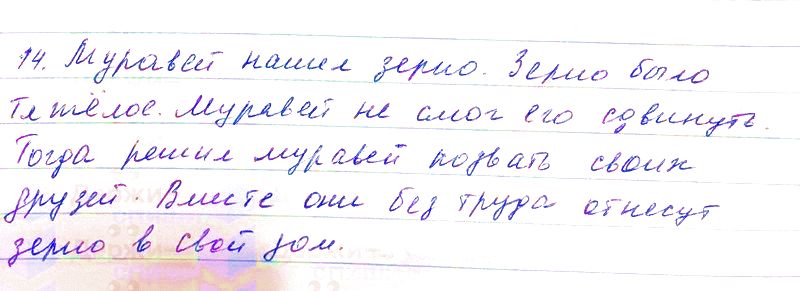 14. Муравей нашел зерно. Зерно было
тяжёлое. Муравей не смог его сдвинуть.
Тогда решил муравей позвать своих
друзей. Вместе они без труда отнесут
зерно в свой дом.